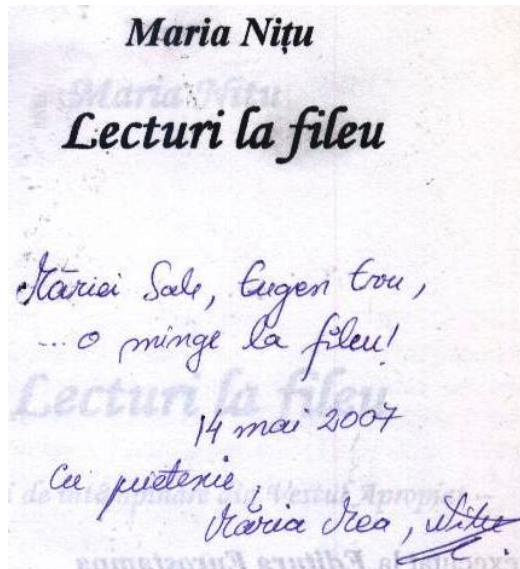 Maria Nițu
Lecturi la fileu
Măriei Sale, Eugen Evu,
... o minge la fileu!
14 mai 2007
Cu prietenie,
Măria Mea, Nițu